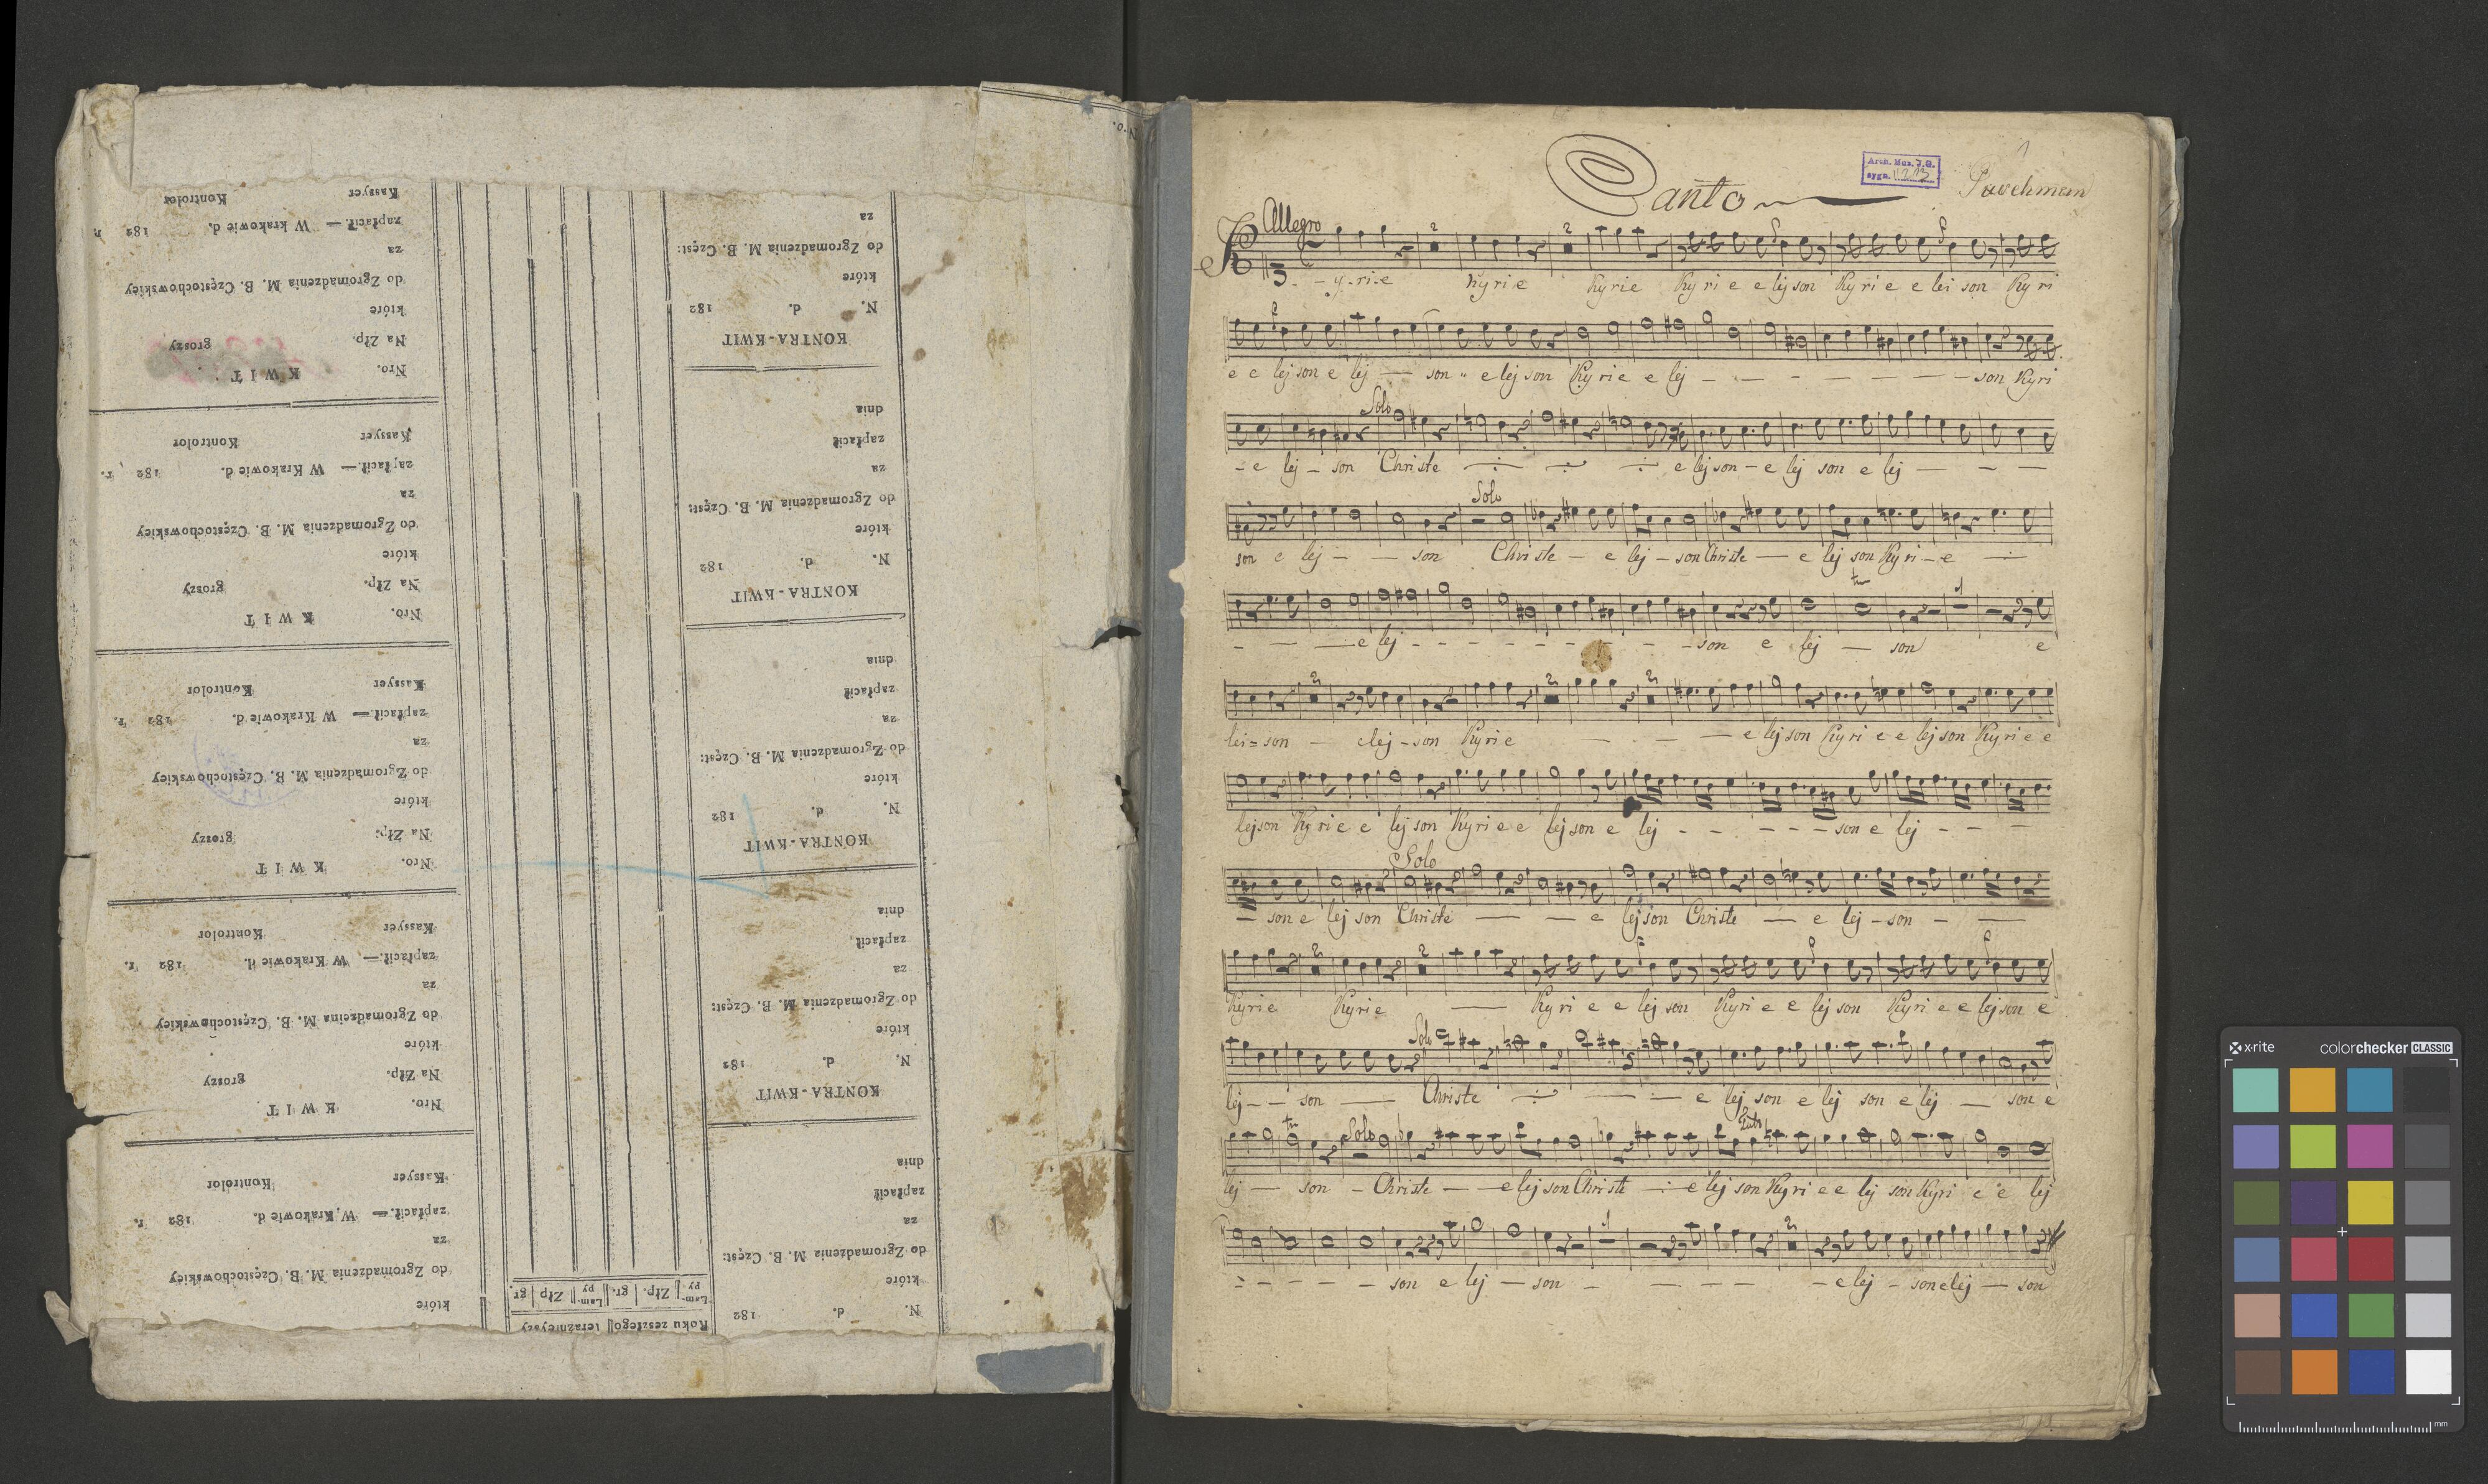 Roku zeszłego terazniejszy
Lam-py Złp. gr. Lam-py Złp gr.
N. d. 182
które
do Zgromadzenia M. B. Częst:
za
zapłacił
dnia
KONTRA-KWIT
N. d. 182
które
do Zgromadzenia M. B. Częst:
za
zapłacił
dnia
KONTRA-KWIT
N. d. 182
które
do Zgromadzenia M. B. Częst:
za
zapłacił
dnia
KONTRA-KWIT
N. d. 182
które
do Zgromadzenia M. B. Częst:
za
zapłacił
dnia
KONTRA-KWIT
N. d. 182
które
do Zgromadzenia M. B. Częst:
za
które
do Zgromadzenia M. B. Częstochowskiey
za
zapłacił.— W Krakowie d. 182 r.
Kassyer Kontrolor
Nro. KWIT
Na Złp. groszy
które
do Zgromadzeina M. B. Częstochowskiey
za
zapłacił.— W Krakowie d. 182 r.
Kassyer Kontrolor
Nro. KWIT
Na Złp. groszy
które
do Zgromadzenia M. B. Częstochowskiey
za
zapłacił.— W Krakowie d. 182 r.
Kassyer Kontrolor
Nro. KWIT
Na Złp. groszy
które
do Zgromadzenia M. B. Częstochowskiey
za
zapłacił.— W Krakowie d. 182 r.
Kassyer Kontrolor
Nro. KWIT
Na Złp. groszy
które
do Zgromadzenia M. B. Częstochowskiey
za
zapłacił.— W krakowie d. 182 r.
Kassyer Kontrolor
N-o.
1
Canto
Arch. Muz. J.G.
sygn. 1213
Allegro
Ky-ri-e Kyrie Kyrie Kyri e e lejson Kyri e e lei son Kyri
e e lej son e lej — son e lej son Kyrie e lej - - - - - - - son Kyri
Solo
- e lej - son Christe — — — e lej son - e lej son e lej — - —
Solo
son e lej - - son Christe - e lej - son Christe — e lej son Kyri - e —
tr 1
- - — e lej - - - - - - - - son e lej — son e
2 2 2
lei = son — elej - son Kyrie — - — e lej son Kyri e e lej son Kyri e e
lejson Kyrie e lej son Kyri e e lej son e lej - - - - - son e lej - - -
Solo
— son e lej son Christe — — e lej son Christe — e lej - son - —
2 2
Kyrie Kyrie — Kyri e e lej son Kyri e e lej son Kyri e e lej son e
Solo
lej - - son — Christe — — - e lej son e lej son e lej — son e
tr Solo Tutti
lej — son - Christe — - e lej son Christe — e lej son Kyri e e lej son Kyri e e lej
1 2
- - - - - son e lej — son - — - - - e lej - son e lej — son
x-rite colorchecker CLASSIC
mm